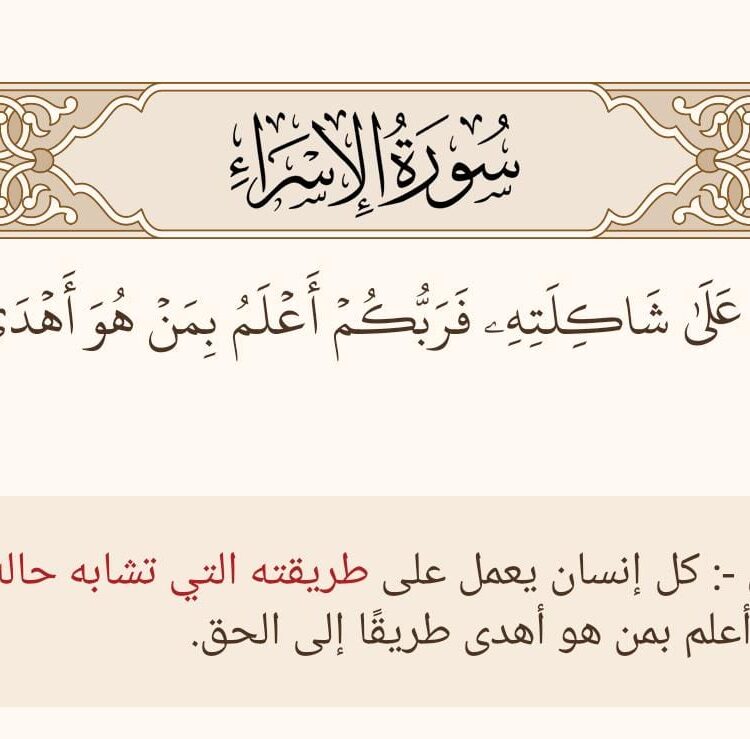 سُورَةُ الإِسْرَاءِ
عَلَىٰ شَاكِلَتِهِۦ فَرَبُّكُمْ أَعْلَمُ بِمَنْ هُوَ أَهْدَىٰ
-: كل إنسان يعمل على طريقته التي تشابه حاله
أعلم بمن هو أهدى طريقًا إلى الحق.